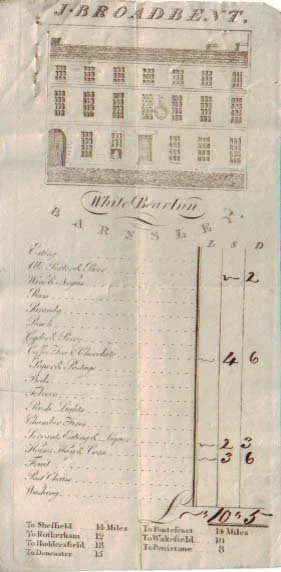 J. BROADBENT.
White Bear Inn
BARNSLEY.
L S D
Eating
Ale Porter & Beer ~ 2
Wine & Negus
Rum
Brandy
Punch
Cyder & Perry
Coffee Tea & Chocolate ~ 4 6
Paper & Postage
Beds
Tobacco
Rush Lights
Chamber Fires
Servants Eating & Liquor ~ 2 3
Horses Hay & Corn ~ 3 6
Fruit
Post Chaise
Washing
£ ~ 10 " 5
To Sheffield 14 Miles To Pontefract 14 Miles
To Rotherham 12 To Wakefield 10
To Huddersfield 18 To Penistone 8
To Doncaster 15